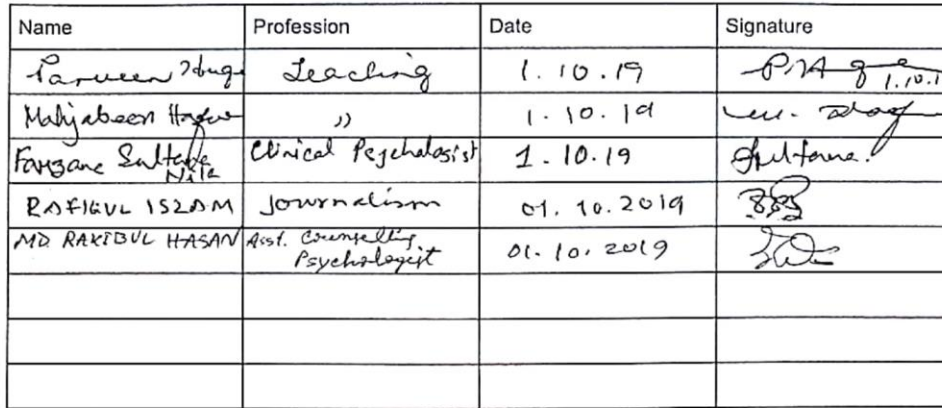 Name Profession Date Signature
Parveen Huq Teaching 1.10.19 1.10.1
Mahjabeen Haque ,, 1.10.19
Farzana Sultana Nila Clinical Psychologist 1.10.19 Sultana.
RAFIQUL ISLAM Journalism 01.10.2019
MD. RAKIBUL HASAN Asst. Counselling Psychologist 01.10.2019